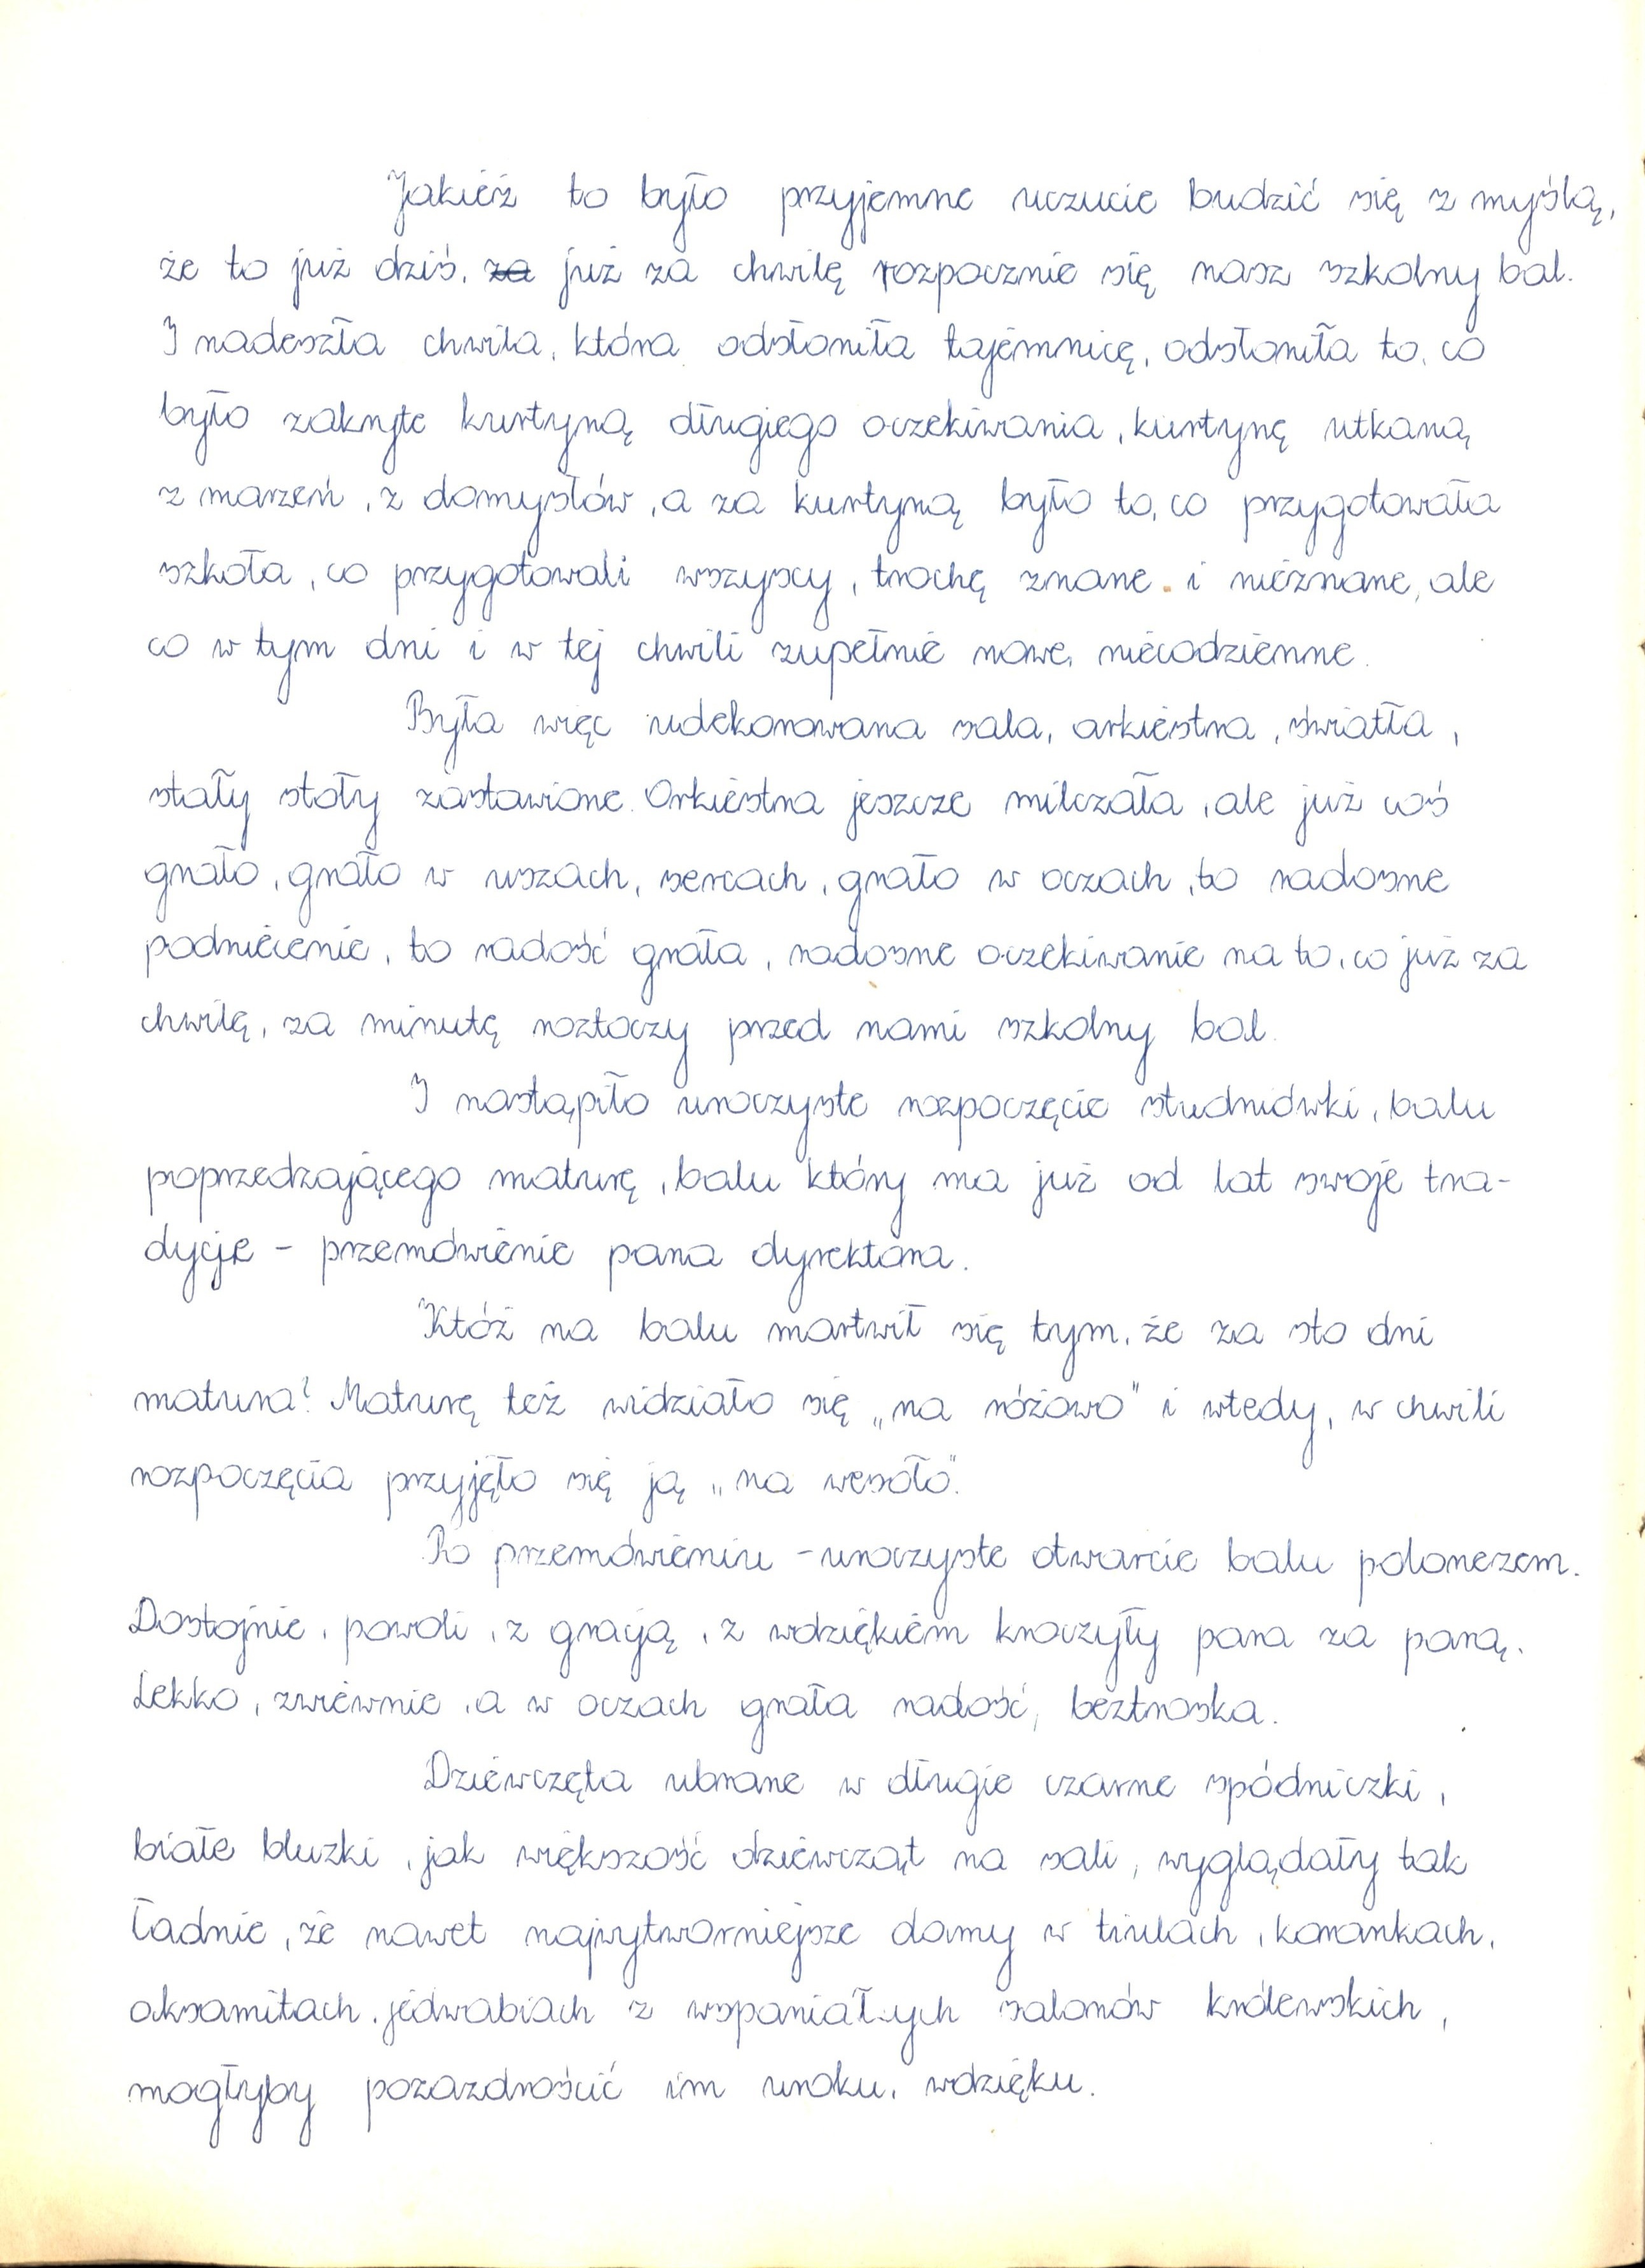 Jakież to było przyjemne uczucie budzić się z myślą,
że to już dziś, za już za chwilę rozpocznie się nasz szkolny bal.
I nadeszła chwila, która odsłoniła tajemnicę, odsłoniła to, co
było zakryte kurtyną długiego oczekiwania, kurtynę utkaną
z marzeń, z domysłów, a za kurtyną było to, co przygotowała
szkoła, co przygotowali wszyscy, trochę znane i nieznane, ale
co w tym dni i w tej chwili zupełnie nowe, niecodzienne.
Była więc udekorowana sala, orkiestra, światła,
stały stoły zastawione. Orkiestra jeszcze milczała, ale już coś
grało, grało w uszach, sercach, grało w oczach, to radosne
podniecenie, to radość grała, radosne oczekiwanie na to, co już za
chwilę, za minutę roztoczy przed nami szkolny bal.
I nastąpiło uroczyste rozpoczęcie studniówki, balu
poprzedzającego maturę, balu który ma już od lat swoje tra-
dycje - przemówienie pana dyrektora.
Któż na balu martwił się tym, że za sto dni
matura? Maturę też widziało się „na różowo" i wtedy, w chwili
rozpoczęcia przyjęło się ją „na wesoło".
Po przemówieniu - uroczyste otwarcie balu polonezem.
Dostojnie, powoli, z gracją, z wdziękiem kroczyły para za parą.
Lekko, zwiewnie, a w oczach grała radość, beztroska.
Dziewczęta ubrane w długie czarne spódniczki,
białe bluzki, jak większość dziewcząt na sali, wyglądały tak
ładnie, że nawet najwytworniejsze damy w tiulach, koronkach,
aksamitach, jedwabiach z wspaniałych salonów królewskich,
mogłyby pozazdrościć im uroku, wdzięku.